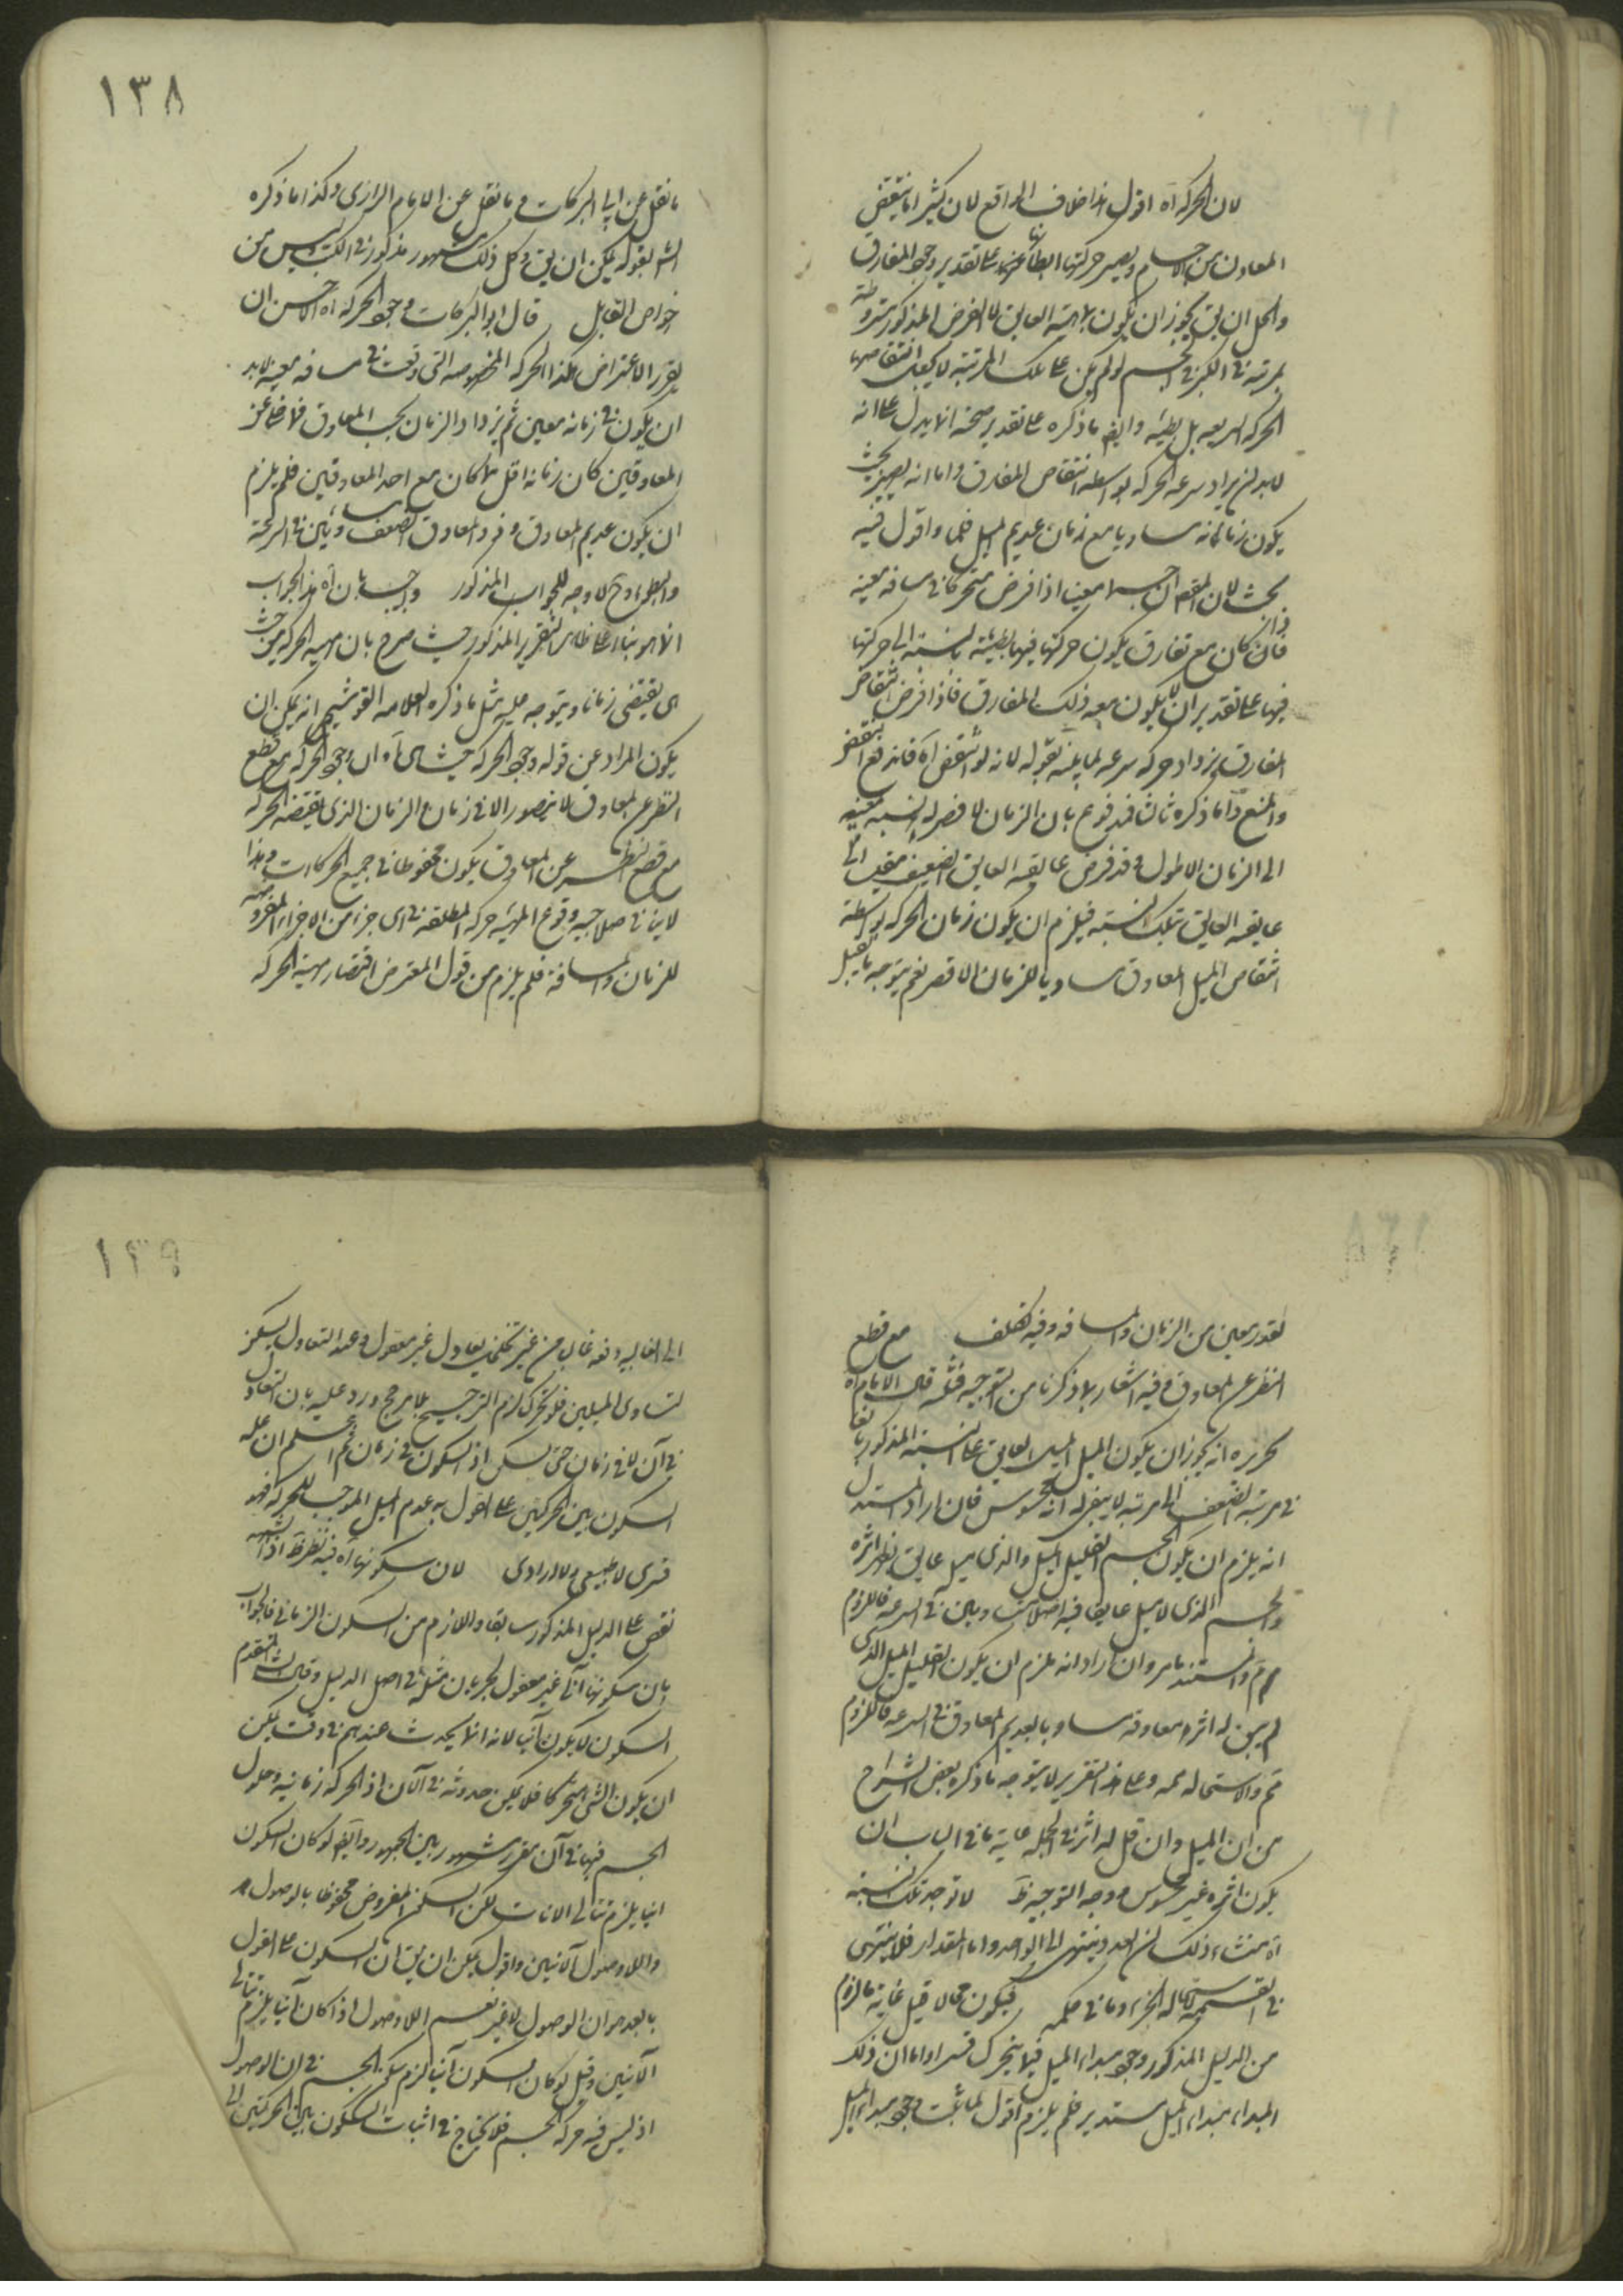 لان الحركة آه اقول هذا خلاف الواقع لان كثيرا ما ينتقض
المعاون من الاجسام ويصير حركتها ابطأ على تقدير وجود المفارق
والحل ان يق يجوز ان يكون ماهية العايق لا الغرض المذكور مشروطة
بمرتبة في الكبر في الجسم لو لم يكن على تلك المرتبة لا يكون انتقاصها
الحركة السريعة بل بطيئة وايضا ما ذكره على تقدير صحته لا يدل على انه
لا بد ان يزداد سرعة الحركة بواسطة انتقاص المفارق واما انه يصير بحيث
يكون زمانه مساويا مع زمان عديم الميل فلا واقول فيه
بحث لان المقصود ان جسما معينا اذا فرض متحركا في مسافة معينة
فان كان مع تفارق يكون حركتها فيها بطيئة بالنسبة الى حركتها
فيها على تقدير ان لا يكون معه ذلك المفارق فاذا فرض انتقاص
المفارق يزداد حركة سرعة لما بينه بقوله لانه لو انتقض آه فاندفع النقض
والمنع واما ما ذكره ثالثا فمدفوع بان الزمان الاقصر له نسبة معينة
الى الزمان الاطول وقد فرض عايقة العايق الضعيف مقيسا الى
عايقة العايق بتلك النسبة فيلزم ان يكون زمان الحركة بواسطة
انتقاص الميل المعاوق مساويا للزمان الاقصر نعم يتوجه ما قيل
١٣٨
ما نقل عن ابي البركات وما نقل عن الامام الرازي وكذا ما ذكره
الش بقوله يمكن ان يق وكل ذلك مشهور مذكور في الكتب وليس من
خواص القابل قال ابو البركات وجود الحركة آه الاحسن ان
يقرر الاعتراض هكذا الحركة المخصوصة التي وقعت في مسافة معينة لا بد
ان يكون في زمانه معين ثم يزداد الزمان بحسب المعاوق فلا خلا عن
المعاوقين كان زمانه اقل مما كان مع احد المعاوقين فلم يلزم
ان يكون عديم المعاوق وذو المعاوق الضعيف متساويين في السرعة
والبطوء وح لا وجه للجواب المذكور واجيب بان آه هذا الجواب
انما هو بناء على ظاهر التقرير المذكور حيث صرح بان مهية الحركة من حيث
هي يقتضي زمانا ويتوجه عليه مثل ما ذكره العلامة القوشجي انه يمكن ان
يكون المراد من قوله وجود الحركة حيث هي آه ان وجود الحركة مع قطع
النظر عن المعاوق لا يتصور الا في زمان والزمان الذي يقتضيه الحركة
مع قطع النظر عن المعاوق يكون محفوظا في جميع الحركات وهذا
لا ينافي صلاحية وقوع المهية حركة المطلقة في اي جزء من الاجزاء المفروضة
للزمان والمسافة فلم يلزم من قول المعترض اقتضاء مهية الحركة
لقدر معين من الزمان والمسافة وفيه تكلف مع قطع
النظر عن المعاوق وفيه اشعار بما ذكرنا من التوجيه فتنبه قال الامام آه
تحريره انه يجوز ان يكون الميل العايق على النسبة المذكورة بالغا
في مرتبة الضعف الى مرتبة لا يبقى له اثر محسوس فان اراد المستدل
انه يلزم ان يكون الجسم القليل الميل والذي ميل عايق يظهر اثره
والجسم الذي لا ميل عايقا فيه اصلا متساويين في السرعة فاللزوم
مم والسند ما مر وان اراد انه يلزم ان يكون القليل الميل الذي
لم يبق له اثر معاوقة مساويا بعديم المعاوق في السرعة فاللزوم
تم والاستحالة مم وعلى هذا التقرير لا يتوجه ما ذكره بعض الشراح
من ان الميل وان قل له اثر في الجملة غاية ما في الباب ان
يكون اثره غير محسوس ووجه التوجيه ظ لا توجد تلك النسبة
آه منشاء ذلك ان العدد ينتهي الى الواحد واما المقدار فلا ينتهي
في القسمة لاستحالة الجزء وما في حكمه فيكون محالا قيل غاية ما لزم
من الدليل المذكور وجود مبدأ الميل فيما يتحرك قسرا واما ان ذلك
المبدأ مبدأ الميل مستدير فلم يلزم اقول لما ثبت وجود مبدأ الميل
١٣٩
الى الغالبية دفعة غالب من غير تخلل تعادل غير معقول وعند التعادل يسكن
لتساوي الميلين فلو تحرك لزم الترجيح بلا مرجح ورد عليه بان التعادل
في آن لا في زمان حتى يسكن اذ السكون في زمان ثم اعلم ان علة
السكون بين الحركتين على القول به عدم الميل الموجب للحركة فهو
قسري لا طبيعي ولا ارادي لان سكونها آه فيه نظر ظ اذ الشبهة
نقض على الدليل المذكور سابقا واللازم من السكون الزماني فالجواب
بان سكونها آني غير معقول لجريان مثله في اصل الدليل وقال السيد المتقدم
السكون لا يكون آنيا لانه انما يحدث عندهم في وقت يمكن
ان يكون الشيء متحركا فلا يمكن حدوثه في الآن اذ الحركة زمانية وحلول
الجسم فيها في آن مقرر مشهور بين الجمهور وايضا لو كان السكون
آنيا يلزم تتالي الآنات لكن السكون المفروض محفوظا بالوصول
واللاوصول الآنيين واقول يمكن ان يق ان السكون على القول
بالبعد هو ان الوصول لا غير نعم اللاوصول اذا كان آنيا يلزم تتالي
الآنيين وقيل لو كان السكون آنيا لزم سكون الجسم في آن الوصول
اذ ليس فيه حركة الجسم فلا يحتاج في اثبات السكون بين الحركتين الى